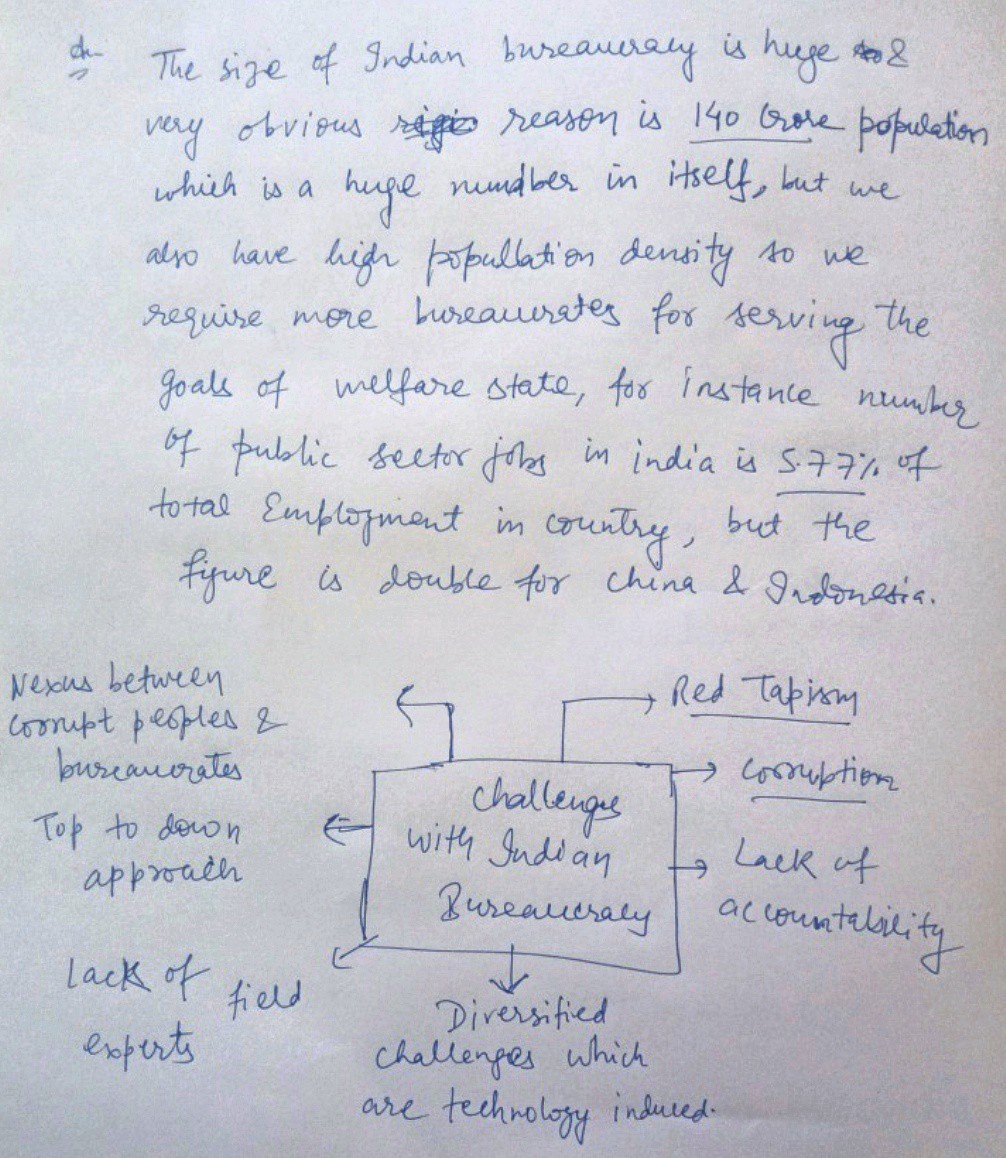 The size of Indian bureaucracy is huge &
very obvious reason is 140 Crore population
which is a huge numdber in itself, but we
also have high popullation density so we
require more bureaucrates for serving the
goals of welfare state, for instance number
of public sector jobs in india is 5.77% of
total Employment in country, but the
figure is double for china & Indonesia.
Nexus between
corrupt peoples &
bureaucrates
Red Tapism
Corruption
Top to down
approach
Challenges
with Indian
Bureaucracy
Lack of
accountability
Lack of field
experts
Diversified
challenges which
are technology induced.